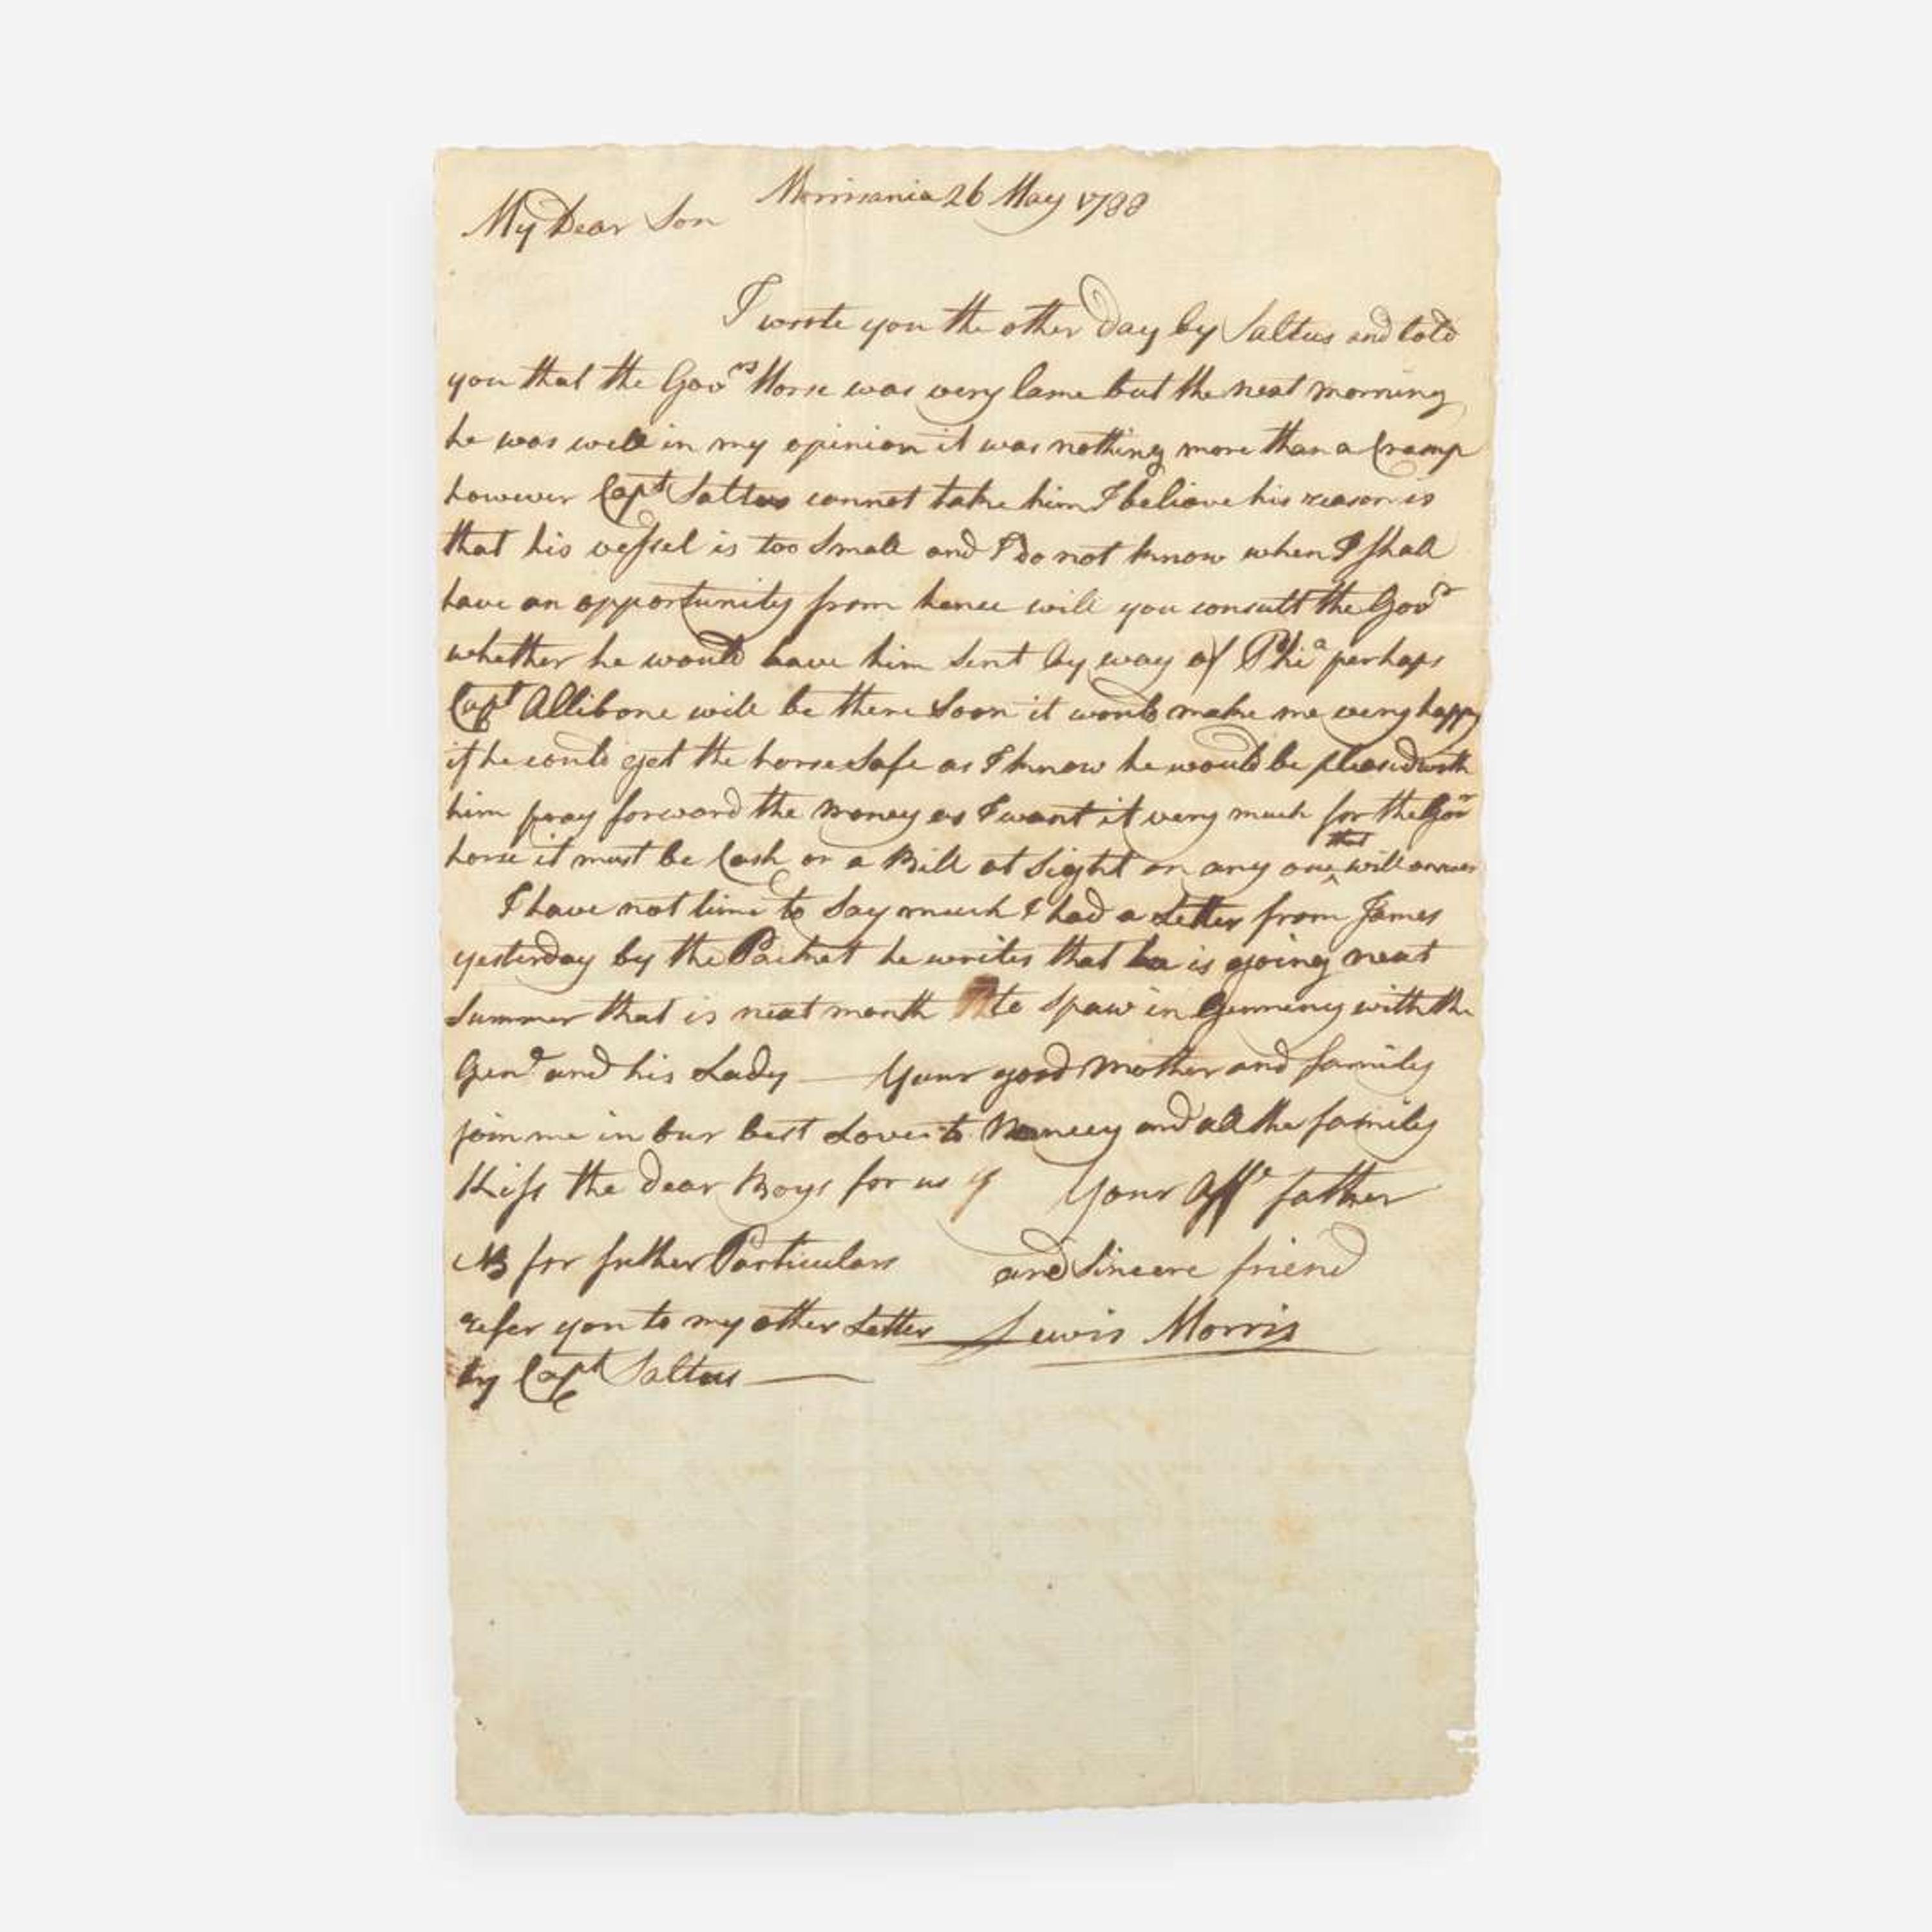 Morrisania 26 May 1788
My Dear Son
I wrote you the other Day by Saltus and told
you that the Govrs Horse was very lame but the next morning
he was well in my opinion it was nothing more than a Cramp
however Capt Saltus cannot take him I believe his reason is
that his vessel is too Small and I do not know when I shall
have an opportunity from hence will you consult the Govr
whether he would have him sent by way of Phia perhaps
Capt Allibone will be there Soon it would make me very happy
if he could get the horse Safe as I know he would be pleasd with
him pray forward the money as I want it very much for the Govr
horse it must be Cash or a Bill at Sight on any one that will answer
I have not time to Say much I had a Letter from James
yesterday by the Packet he writes that he is going next
Summer that is next month to Spaw in Germeny with the
Genl and his Lady — Your good Mother and family
join me in our best Loves to Nancy and all the family
Kiss the Dear Boys for us Your Affe father
NB for futher Particulars and Sincere friend
refer you to my other Letter Lewis Morris
by Capt Saltus —